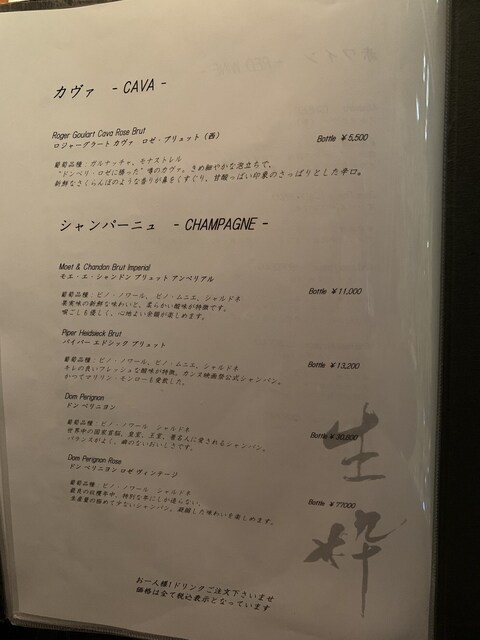 カヴァ - CAVA -
Roger Goulart Cava Rose Brut
ロジャーグラート カヴァ ロゼ・ブリュット (西) Bottle ¥5,500
葡萄品種：ガルナッチャ、モナストレル
"ドンペリ・ロゼに勝った"噂のカヴァ。きめ細やかな泡立ちで、
新鮮なさくらんぼのような香りが鼻をくすぐり、甘酸っぱい印象のさっぱりとした辛口。
シャンパーニュ - CHAMPAGNE -
Moet & Chandon Brut Imperial
モエ・エ・シャンドン ブリュット アンペリアル
Bottle ¥11,000
葡萄品種：ピノ・ノワール、ピノ・ムニエ、シャルドネ
果実味の新鮮な味わいと、柔らかい酸味が特徴です。
喉ごしも優しく、心地よい余韻が楽しめます。
Piper Heidsieck Brut
パイパー エドシック ブリュット
Bottle ¥13,200
葡萄品種：ピノ・ノワール、ピノ・ムニエ、シャルドネ
キレの良いフレッシュな酸味が特徴。カンヌ映画祭公式シャンパン。
かつてマリリン・モンローも愛飲した。
Dom Perignon
ドン ペリニヨン
葡萄品種：ピノ・ノワール シャルドネ
Bottle
世界中の国家首脳、皇室、王室、著名人に愛されるシャンパン。
バランスがよく、雑のないおいしさです。
Dom Perignon Rose
ドン ペリニヨン ロゼ ヴィンテージ
葡萄品種：ピノ・ノワール シャルドネ
Bottle ¥77000
最良の収穫年や、特別な年にしか造らない、
生産量の極めて少ないシャンパン。凝縮した味わいを楽しめます。
生粋
お一人様1ドリンクご注文下さいませ
価格は全て税込表示となっています